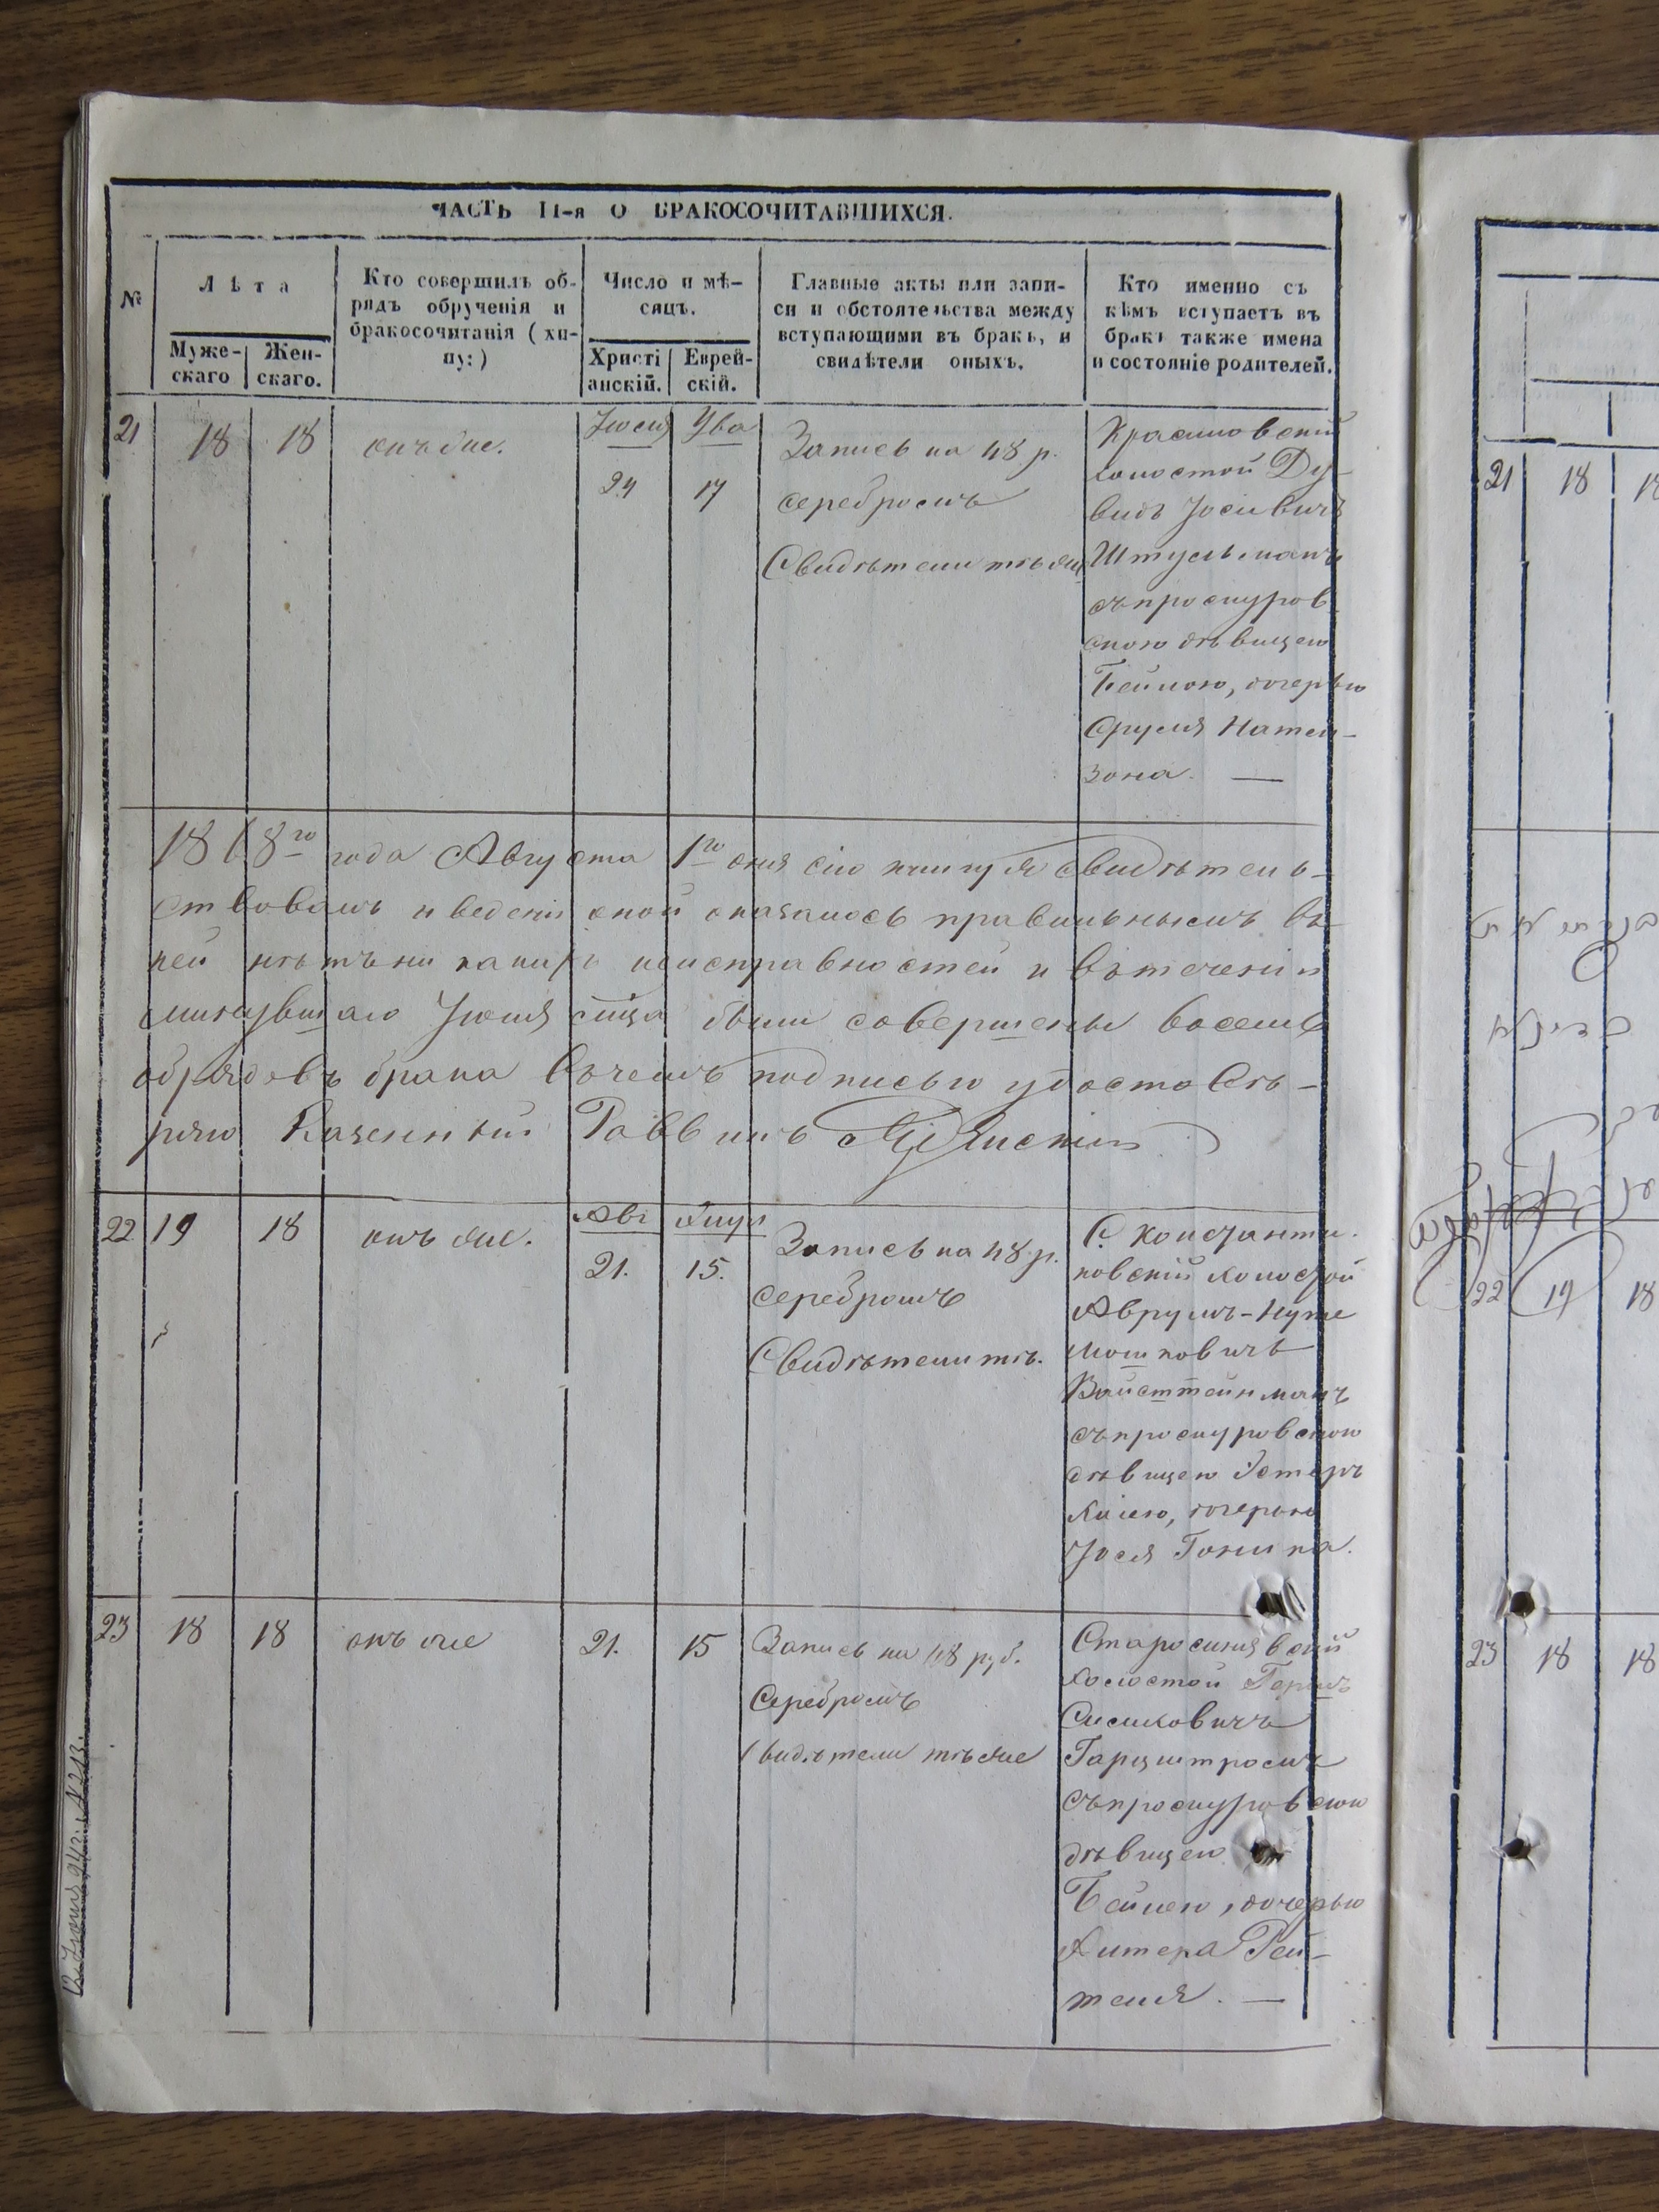 ЧАСТЬ II-я О БРАКОСОЧИТАВШИХСЯ.
№
Лѣта
Муже-
скаго
Жен-
скаго.
Кто совершилъ об-
рядъ обрученія и
бракосочитанія (хи-
пу:)
Число и мѣ-
сяцъ.
Христі
анскій.
Еврей-
скій.
Главные акты или запи-
си и обстоятельства между
вступающими въ бракъ, и
свидѣтели оныхъ.
Кто именно съ
кѣмъ вступаетъ въ
бракъ также имена
и состояніе родителей.
21
18
18
онъ же.
Іюля
24
Ува
17
Запись на 48 р.
серебромъ
Свидѣтели тѣ же
Красиловскій
холостой Ду-
видъ Іосивичъ
Штульманъ
съ проскуров
скою дѣвицею
Бейлою, дочерью
Сруля Натен-
зона. —
1868го года Августа 1го дня сію книгу я свидѣтель-
ствовалъ и веденіи оной оказалось правильнымъ въ
ней нѣтъ ни какихъ неисправностей и въ теченіи
минувшаго Іюля мсца были совершены восемь
обрядовъ брака въ чемъ подписью удостовѣ-
ряю Казенный Раввинъ
22
19
18
онъ же.
Авг
21.
Элул
15.
Запись на 48 р.
серебромъ
Свидѣтели тѣ.
С. Константи-
новскій холостой
Аврумъ-Нуте
Мошковичъ
Вайсштейнманъ
съ проскуровскою
дѣвицею Эстеръ
Хаіею, дочерью
Іося Гоника.
23
18
18
онъ же
21.
15
Запись на 48 руб.
Серебромъ
Свидѣтели тѣ же
Старосинявскій
холостой Гершъ
Сисиковичъ
Гарцштромъ
съ проскуровскою
дѣвицею
Бейлею, дочерью
Хитера Рей-
теля. —
21
18
22
19
18
23
18
18